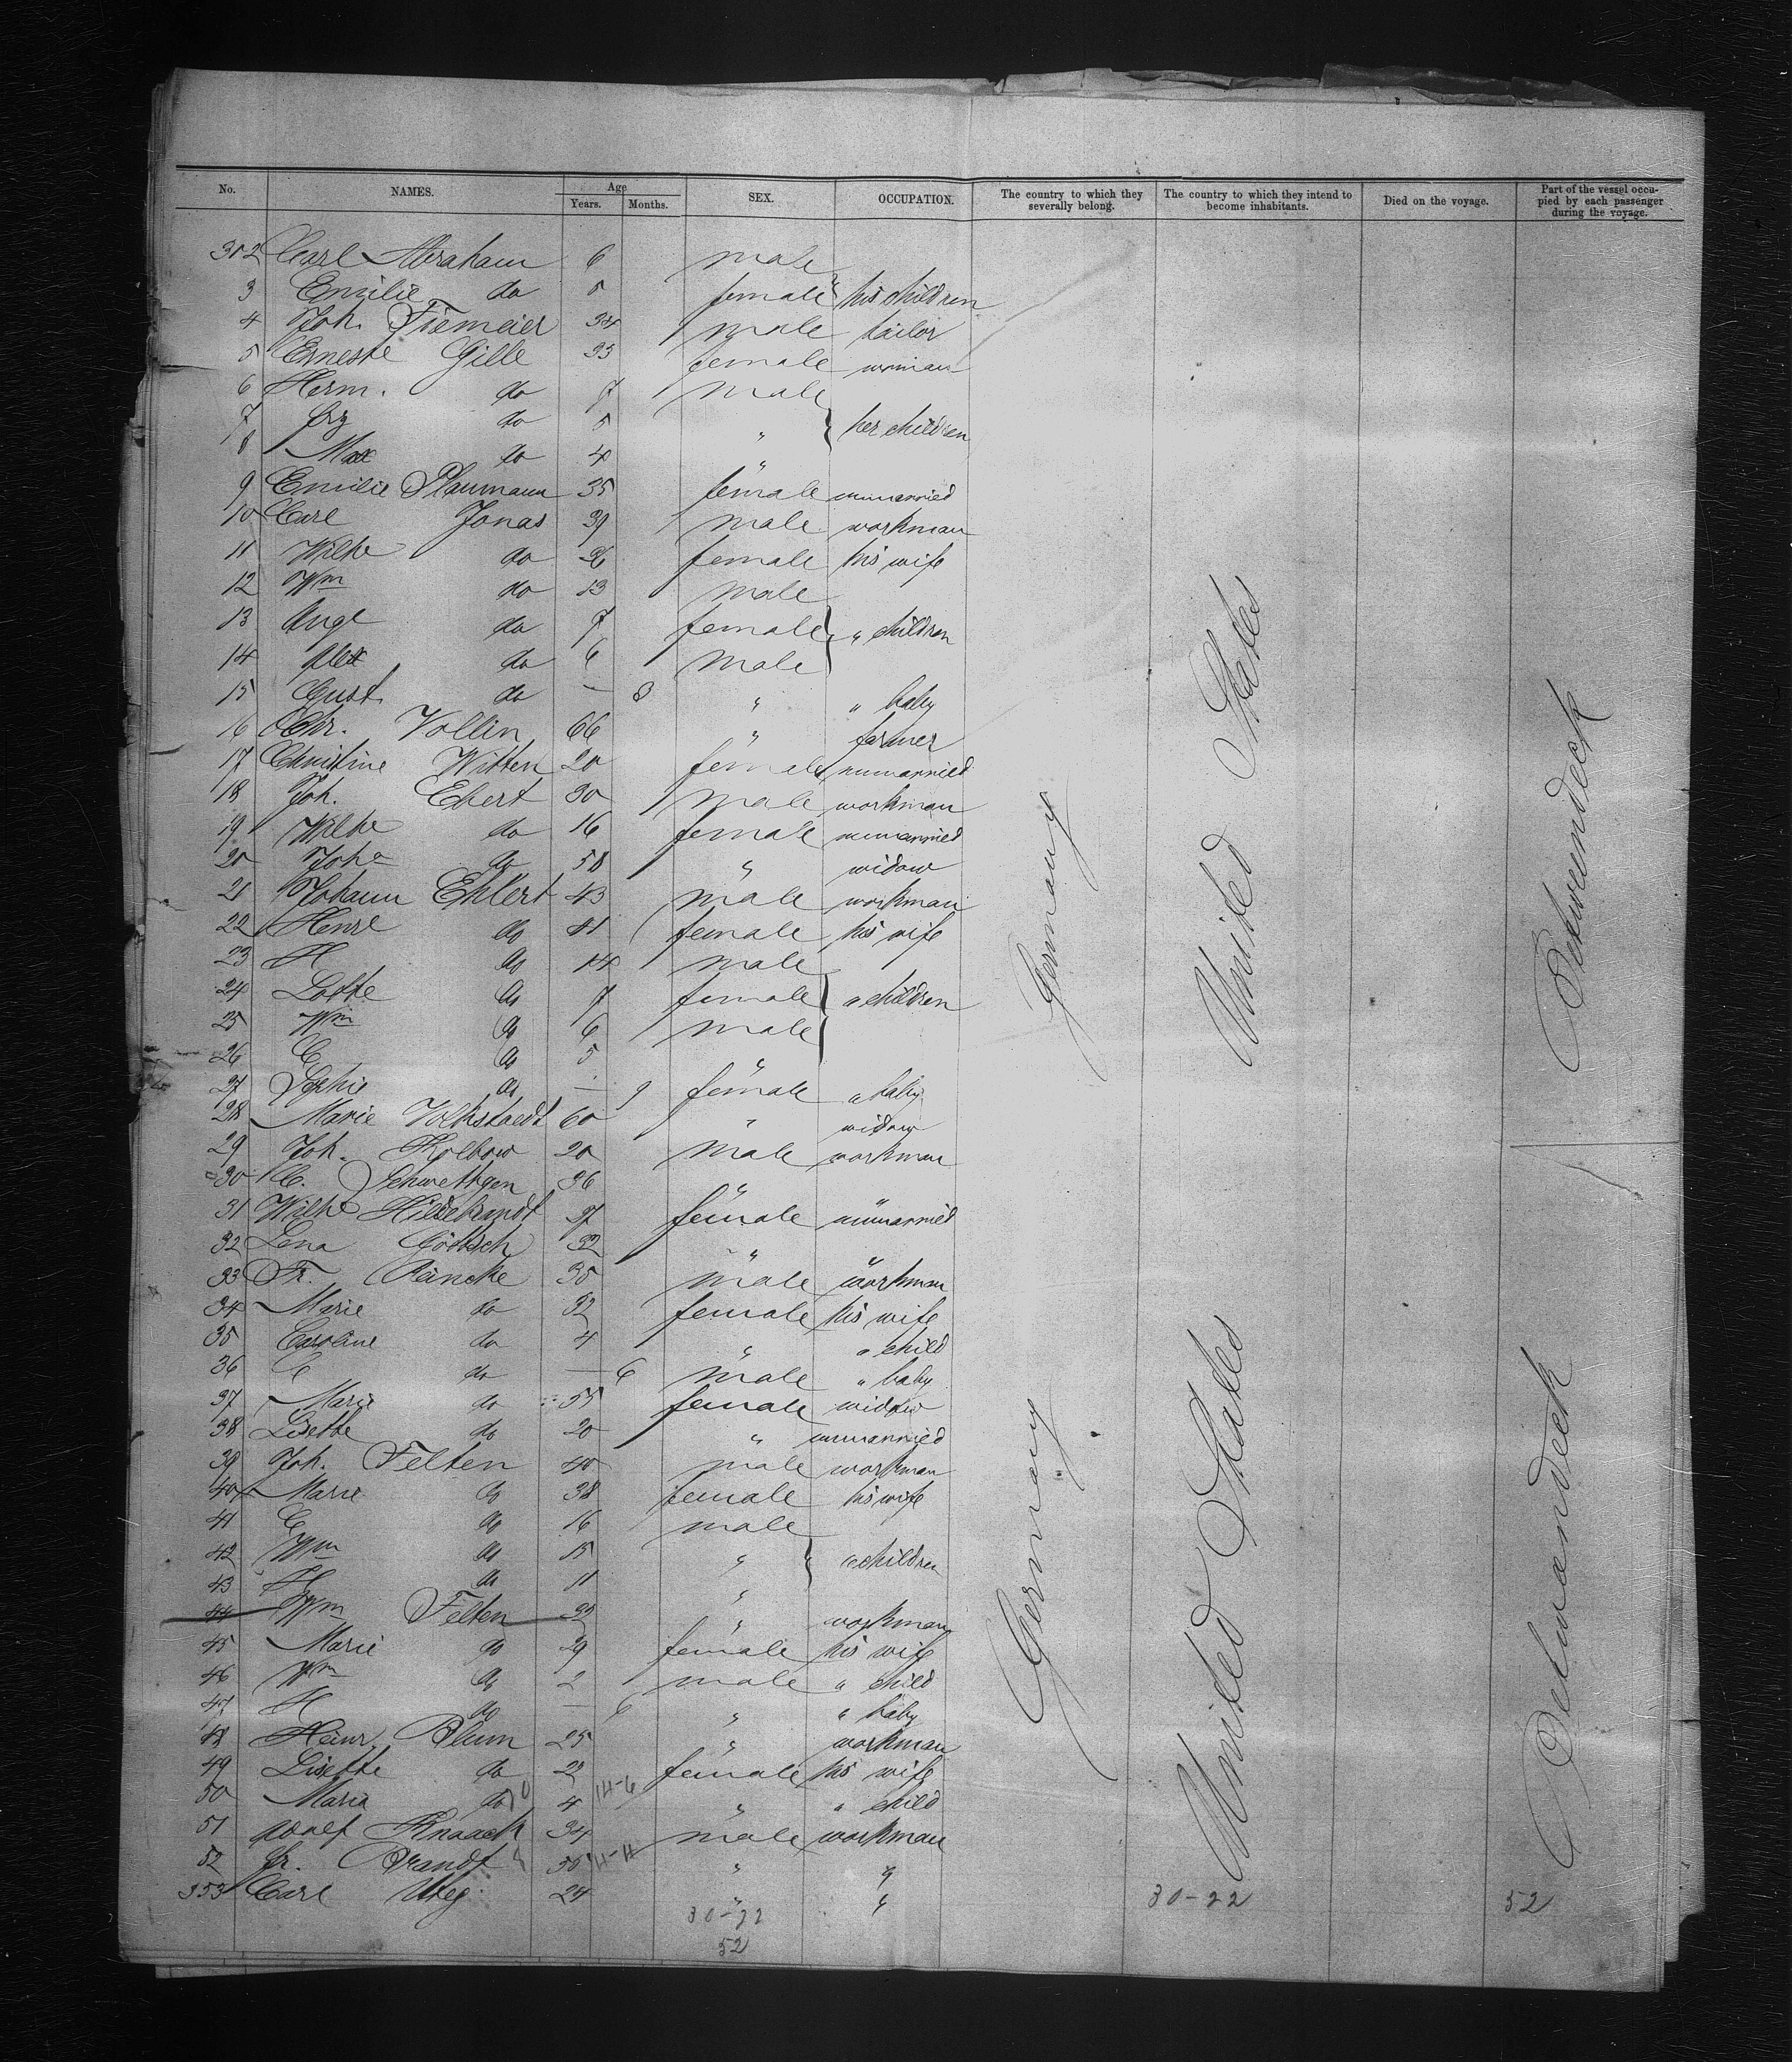 No. NAMES. Age Years. Months. SEX. OCCUPATION. The country to which they severally belong. The country to which they intend to become inhabitants. Died on the voyage. Part of the vessel occupied by each passenger during the voyage.
302 Carl Abraham 6 male
3 Emilie do 5 female his children
4 Joh. Tiemeier 34 male tailor
5 Erneste Gille 33 female woman
6 Herm. do 7 male
7 do 5 " her children
8 Max do 4 "
9 Emilie Plaumann 35 female unmarried
10 Carl Jonas 39 male workman
11 Wilhe do 36 female his wife
12 Wm do 13 male
13 Augt do 7 female " children
14 do 6 male
15 Gust. do — 8 " " baby
16 Chr. Vollin 66 " farmer
17 Christine Witten 20 female unmarried
18 Joh. Ebert 30 male workman
19 Wilhe do 16 female unmarried
20 Johe do 58 " widow
21 Johann Ehlert 43 male workman
22 Henre do 41 female his wife
23 H do 14 male
24 Lotte do 7 female " children
25 Wm do 6 male
26 C do 5 "
27 Sophie do — 9 female " baby
28 Marie Volkstaedt 60 " widow
29 Joh. Kolbow 20 male workman
30 C. Schwettgen 36 " "
31 Wilhe Hildebrandt 27 female unmarried
32 Lena Göttsch 32 " "
33 Fr. Reincke 35 male workman
34 Marie do 32 female his wife
35 Caroline do 4 " " child
36 C do — 6 male " baby
37 Marie do 55 female widow
38 Lisette do 20 " unmarried
39 Joh. Felten 40 male workman
40 Marie do 38 female his wife
41 C do 16 male
42 Wm do 15 " " children
43 H do 11 "
44 Wm Felten 32 " workman
45 Marie do 29 female his wife
46 Wm do 2 male " child
47 H do — 6 " " baby
48 Heinr. Blum 25 " workman
49 Lisette do 23 female his wife
50 Maria do 4 " " child
51 Adolf Knaack 34 male workman
52 Fr. Brandt 30 " "
353 Carl Uteg 24 " "
Germany United States Betweendeck
Germany United States Betweendeck
14-6
11-11
30-22
52
30-22
52